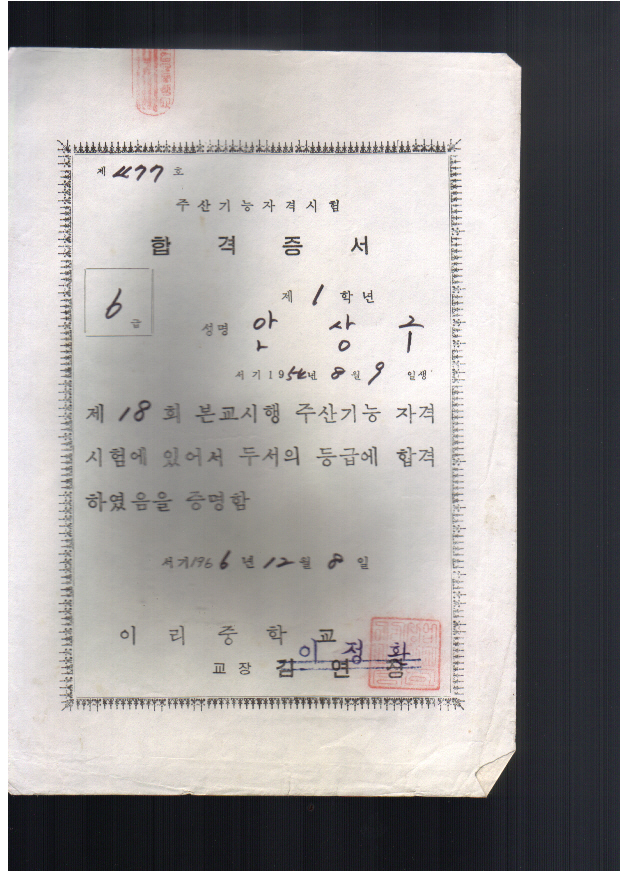 제 477 호
주산기능자격시험
합격증서
6급
제 1 학년
성명 안상구
서기 1954년 8월 9일생
제 18 회 본교시행 주산기능 자격
시험에 있어서 두서의 등급에 합격
하였음을 증명함
서기 1966년 12월 8일
이리중학교
이정화
교장 김연창